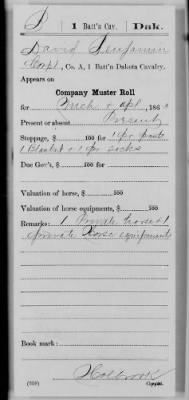 D | 1 Batt'n Cav. | Dak.
David Benjamin
Corpl, Co. A, 1 Batt'n Dakota Cavalry.
Appears on
Company Muster Roll
for March & Apl, 186
Present or absent Present
Stoppage, $ 100 for 1 pr pants
1 Blanket & 1 pr socks
Due Gov't, $ 100 for
Valuation of horse, $ 100
Valuation of horse equipments, $ 100
Remarks: 1 Private horse & 1
private horse equipments
Book mark:
Holbrook
(359) Copyist.